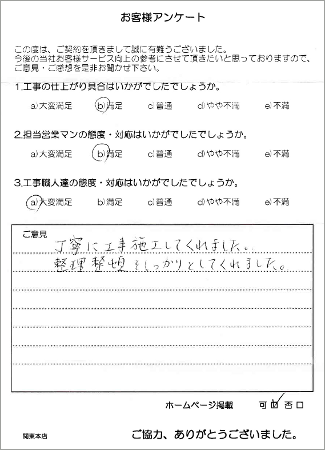 お客様アンケート
この度は、ご契約を頂きまして誠に有難うございました。
今後の当社お客様サービス向上の参考にさせて頂きたいと思っておりますので、
ご意見・ご感想を是非お聞かせ下さい。
1.工事の仕上がり具合はいかがでしたでしょうか。
a)大変満足 b)満足 c)普通 d)やや不満 e)不満
2.担当営業マンの態度・対応はいかがでしたでしょうか。
a)大変満足 b)満足 c)普通 d)やや不満 e)不満
3.工事職人達の態度・対応はいかがでしたでしょうか。
a)大変満足 b)満足 c)普通 d)やや不満 e)不満
ご意見
丁寧に工事施工してくれました。
整理整頓もしっかりとしてくれました。
ホームページ掲載 可 否
関東本店 ご協力、ありがとうございました。